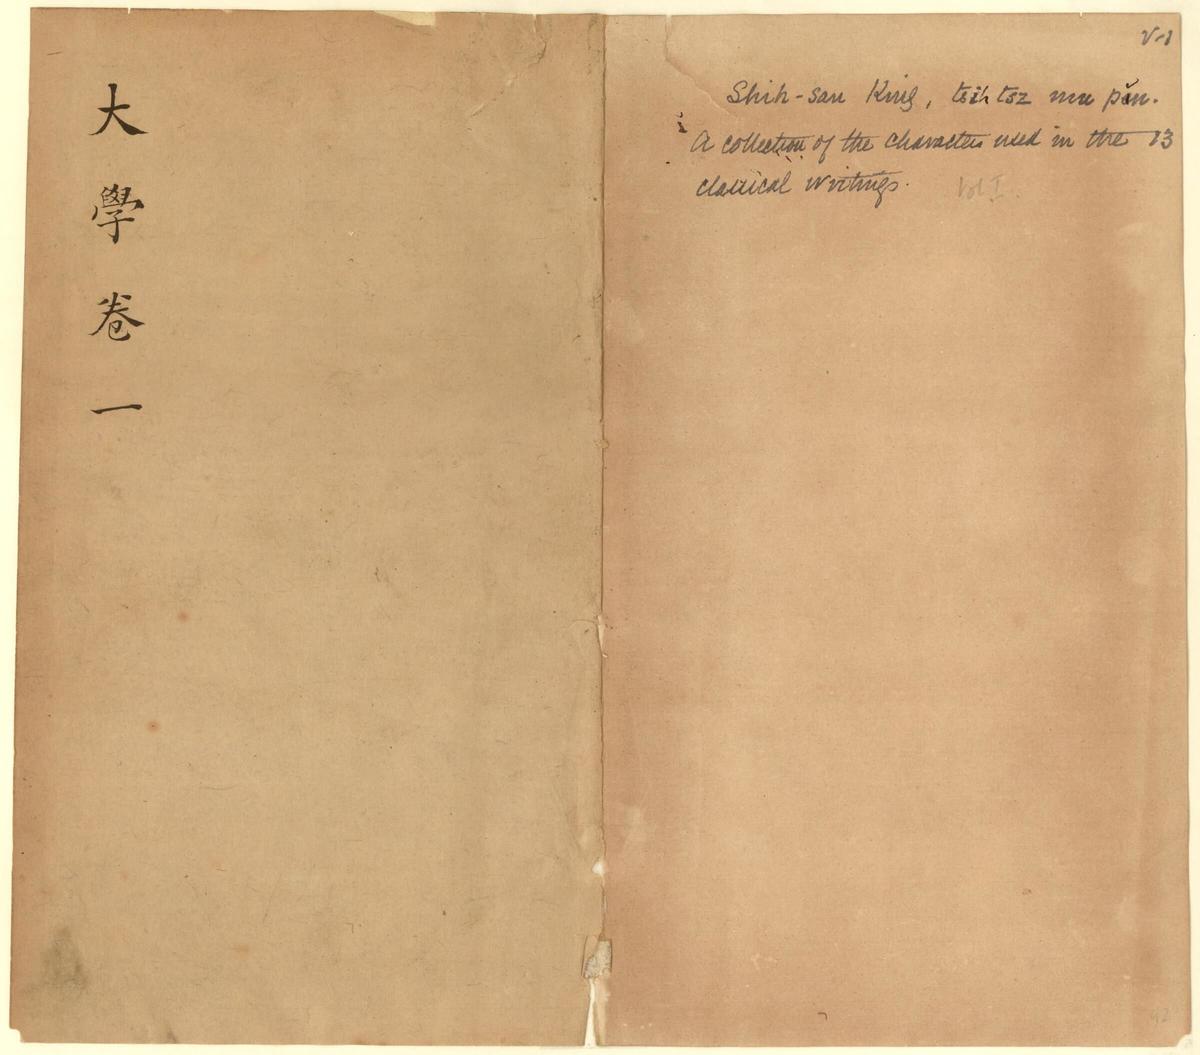 大學卷一
V-1
Shih-san King, tsih tsz mu pŭn.
A collection of the characters used in the 13
classical writings.
Vol I.
92